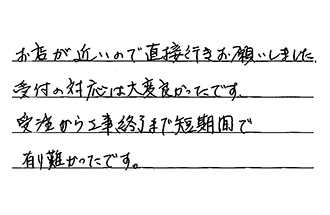 お店が近いので直接行きお願いしました。
受付の対応は大変良かったです。
受注から工事終了まで短期間で
有り難かったです。